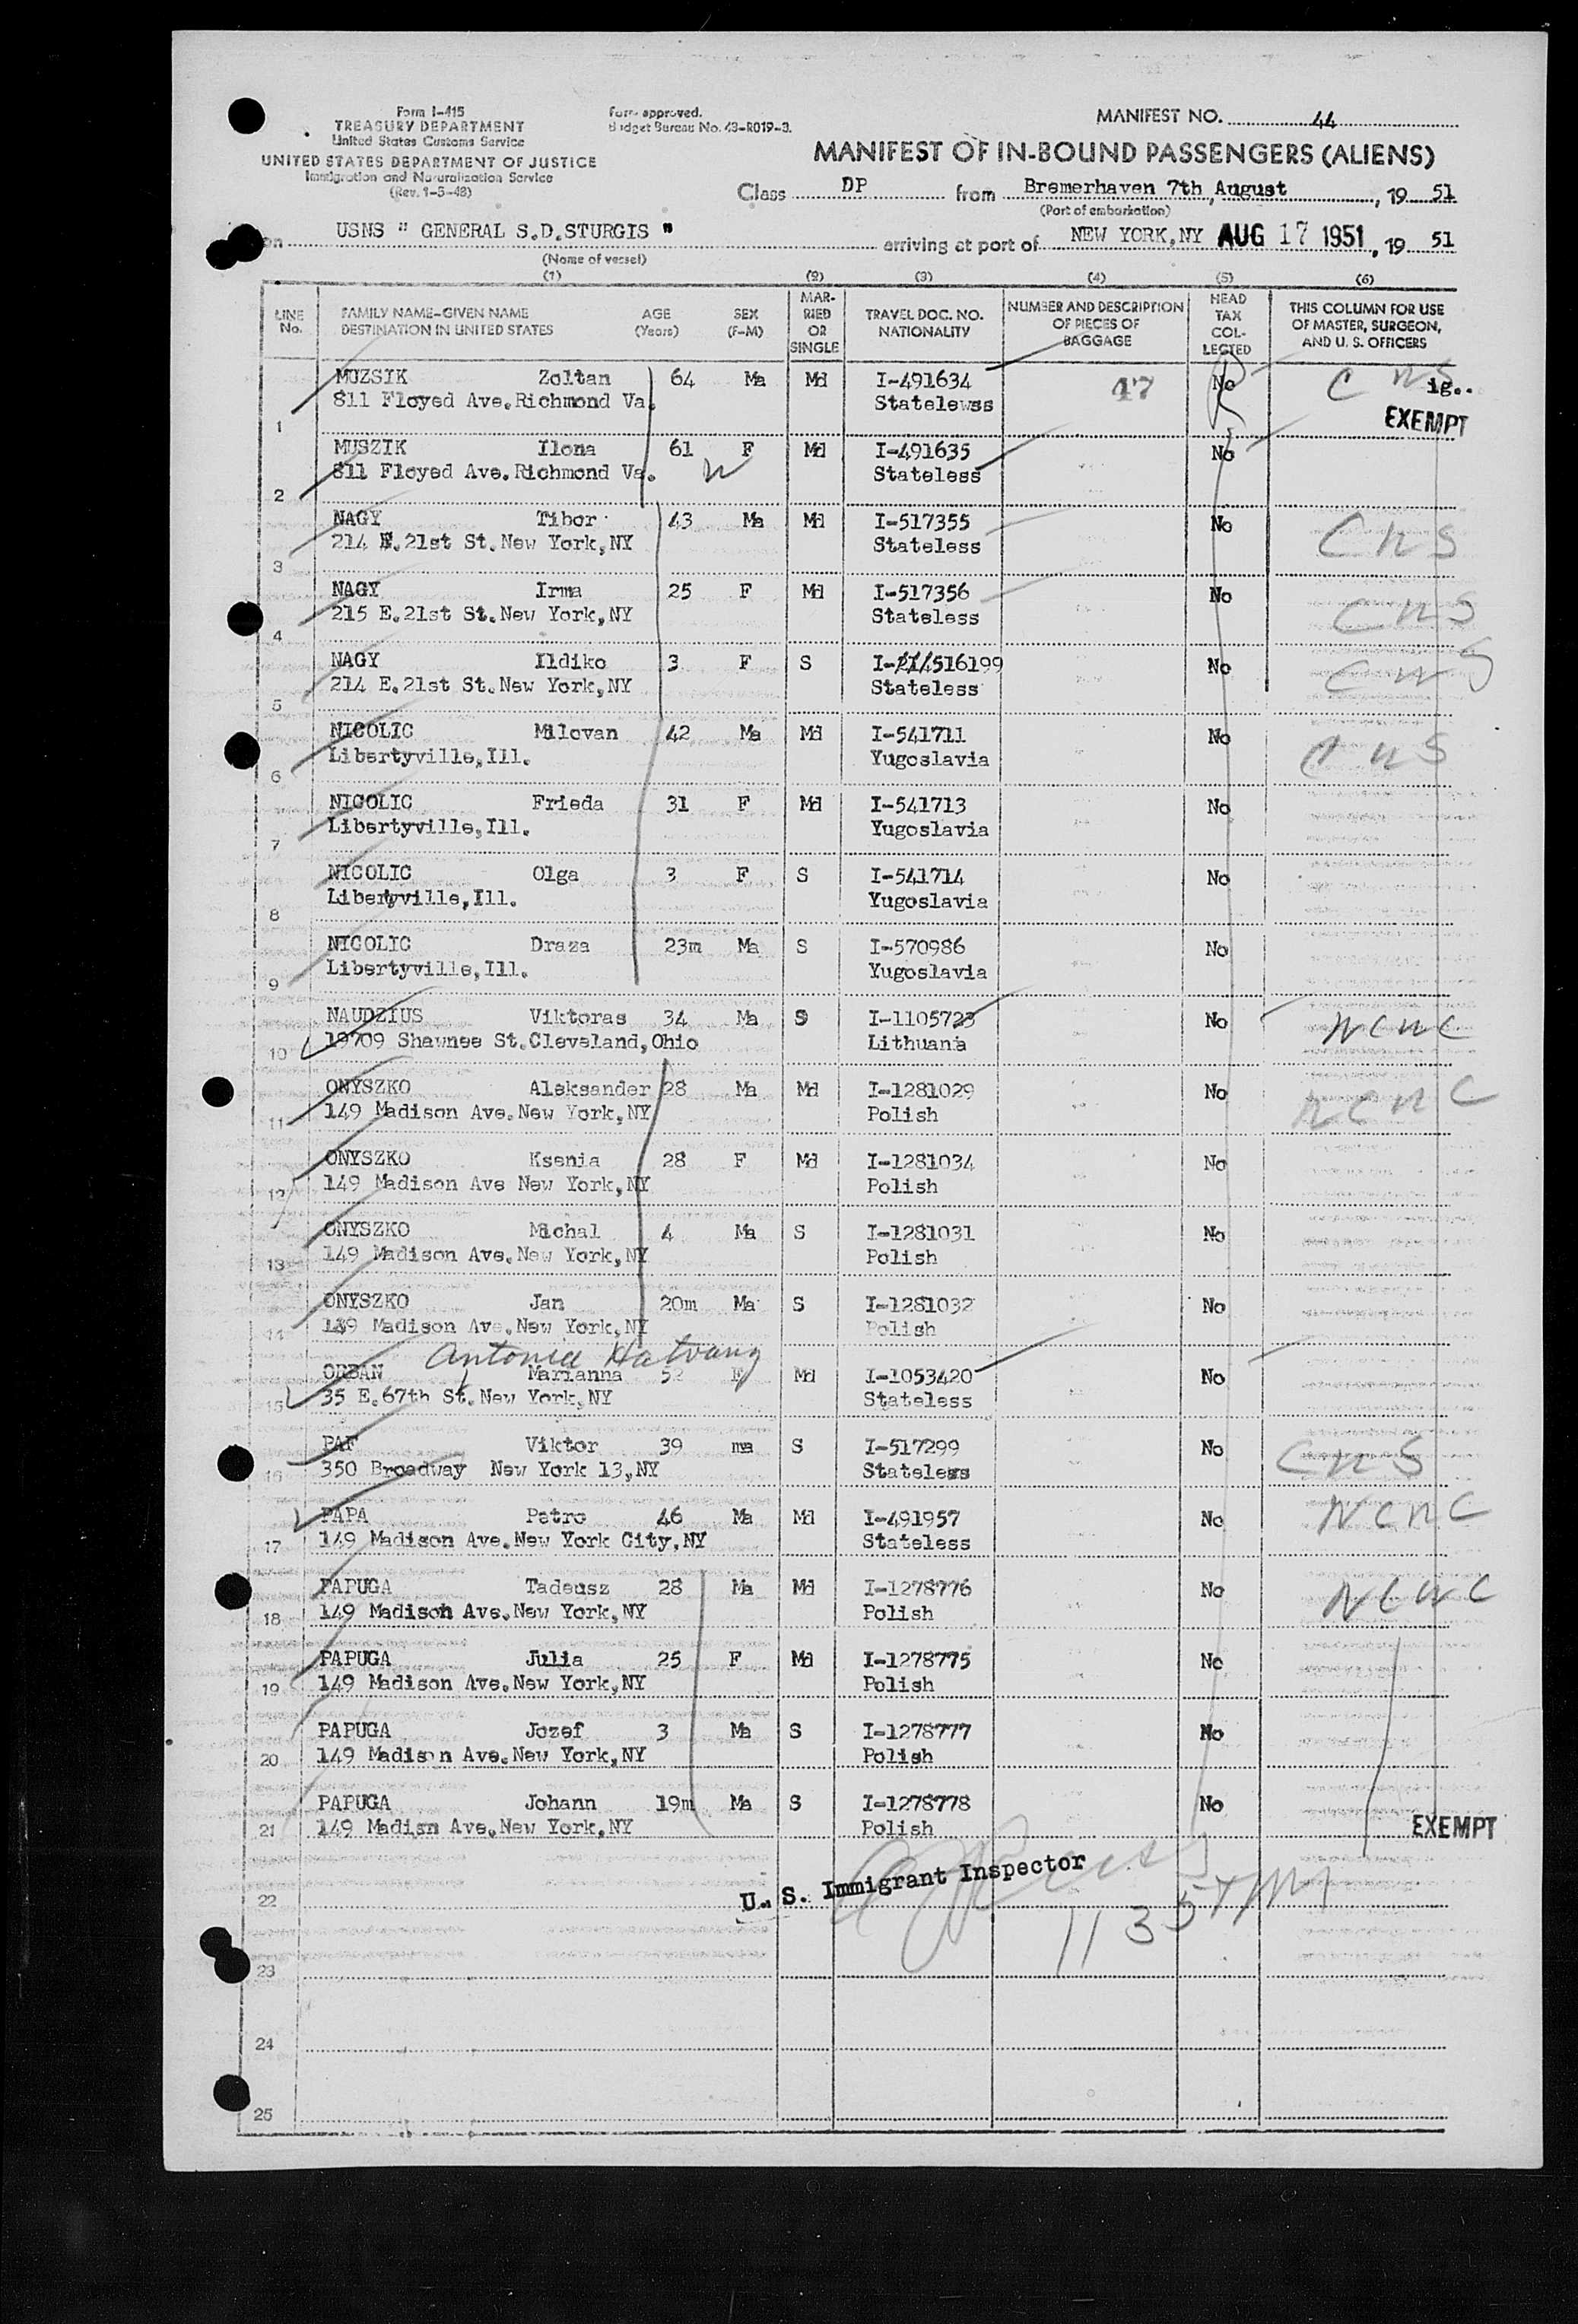 Form I-415
TREASURY DEPARTMENT
United States Customs Service
UNITED STATES DEPARTMENT OF JUSTICE
Immigration and Naturalization Service
(Rev. 1-3-48)
Form approved.
Budget Bureau No. 43-R019-3.
MANIFEST NO. 44
MANIFEST OF IN-BOUND PASSENGERS (ALIENS)
Class DP from Bremerhaven 7th, August, 19 51
(Port of embarkation)
on USNS " GENERAL S.D.STURGIS " arriving at port of NEW YORK, NY AUG 17 1951, 19 51
(Name of vessel)
(1) (2) (3) (4) (5) (6)
LINE No. FAMILY NAME-GIVEN NAME DESTINATION IN UNITED STATES AGE (Years) SEX (F-M) MARRIED OR SINGLE TRAVEL DOC. NO. NATIONALITY NUMBER AND DESCRIPTION OF PIECES OF BAGGAGE HEAD TAX COLLECTED THIS COLUMN FOR USE OF MASTER, SURGEON, AND U. S. OFFICERS
MUZSIK Zoltan 64 Ma Md I-491634 47 No CNS ig..
811 Floyed Ave.Richmond Va. Statelewss EXEMPT
1
MUSZIK Ilona 61 F Md I-491635 No
811 Floyed Ave.Richmond Va. W Stateless
2
NAGY Tibor 43 Ma Md I-517355 No CNS
214 E.21st St.New York,NY Stateless
3
NAGY Irma 25 F Md I-517356 No CNS
215 E.21st St.New York,NY Stateless
4
NAGY Ildiko 3 F S I-21/516199 No CNS
214 E.21st St.New York,NY Stateless
5
NICOLIC Milovan 42 Ma Md I-541711 No CNS
Libertyville,Ill. Yugoslavia
6
NICOLIC Frieda 31 F Md I-541713 No
Libertyville,Ill. Yugoslavia
7
NICOLIC Olga 3 F S I-541714 No
Libertyville,Ill. Yugoslavia
8
NICOLIC Draza 23m Ma S I-570986 No
Libertyville,Ill. Yugoslavia
9
NAUDZIUS Viktoras 34 Ma S I-1105723 No NCWC
10 19709 Shawnee St.Cleveland,Ohio Lithuana
ONYSZKO Aleksander 28 Ma Md I-1281029 No NCWC
11 149 Madison Ave.New York,NY Polish
ONYSZKO Ksenia 28 F Md I-1281034 No
12 149 Madison Ave New York,NY Polish
ONYSZKO Michal 4 Ma S I-1281031 No
13 149 Madison Ave.New York,NY Polish
ONYSZKO Jan 20m Ma S I-1281032 No
14 149 Madison Ave.New York,NY Polish
Antonia Hatvany
ORBAN Marianna 52 F Md I-1053420 No
15 35 E.67th St.New York,NY Stateless
PAF Viktor 39 ma S I-517299 No CNS
16 350 Broadway New York 13,NY Stateless
PAPA Petro 46 Ma Md I-491957 No NCWC
17 149 Madison Ave.New York City,NY Stateless
PAPUGA Tadeusz 28 Ma Md I-1278776 No NCWC
18 149 Madison Ave.New York,NY Polish
PAPUGA Julia 25 F Md I-1278775 No
19 149 Madison Ave.New York,NY Polish
PAPUGA Jozef 3 Ma S I-1278777 No
20 149 Madison Ave.New York,NY Polish
PAPUGA Johann 19m Ma S I-1278778 No
21 149 Madisn Ave.New York.NY Polish EXEMPT
U. S. Immigrant Inspector
22
1135
23
24
25